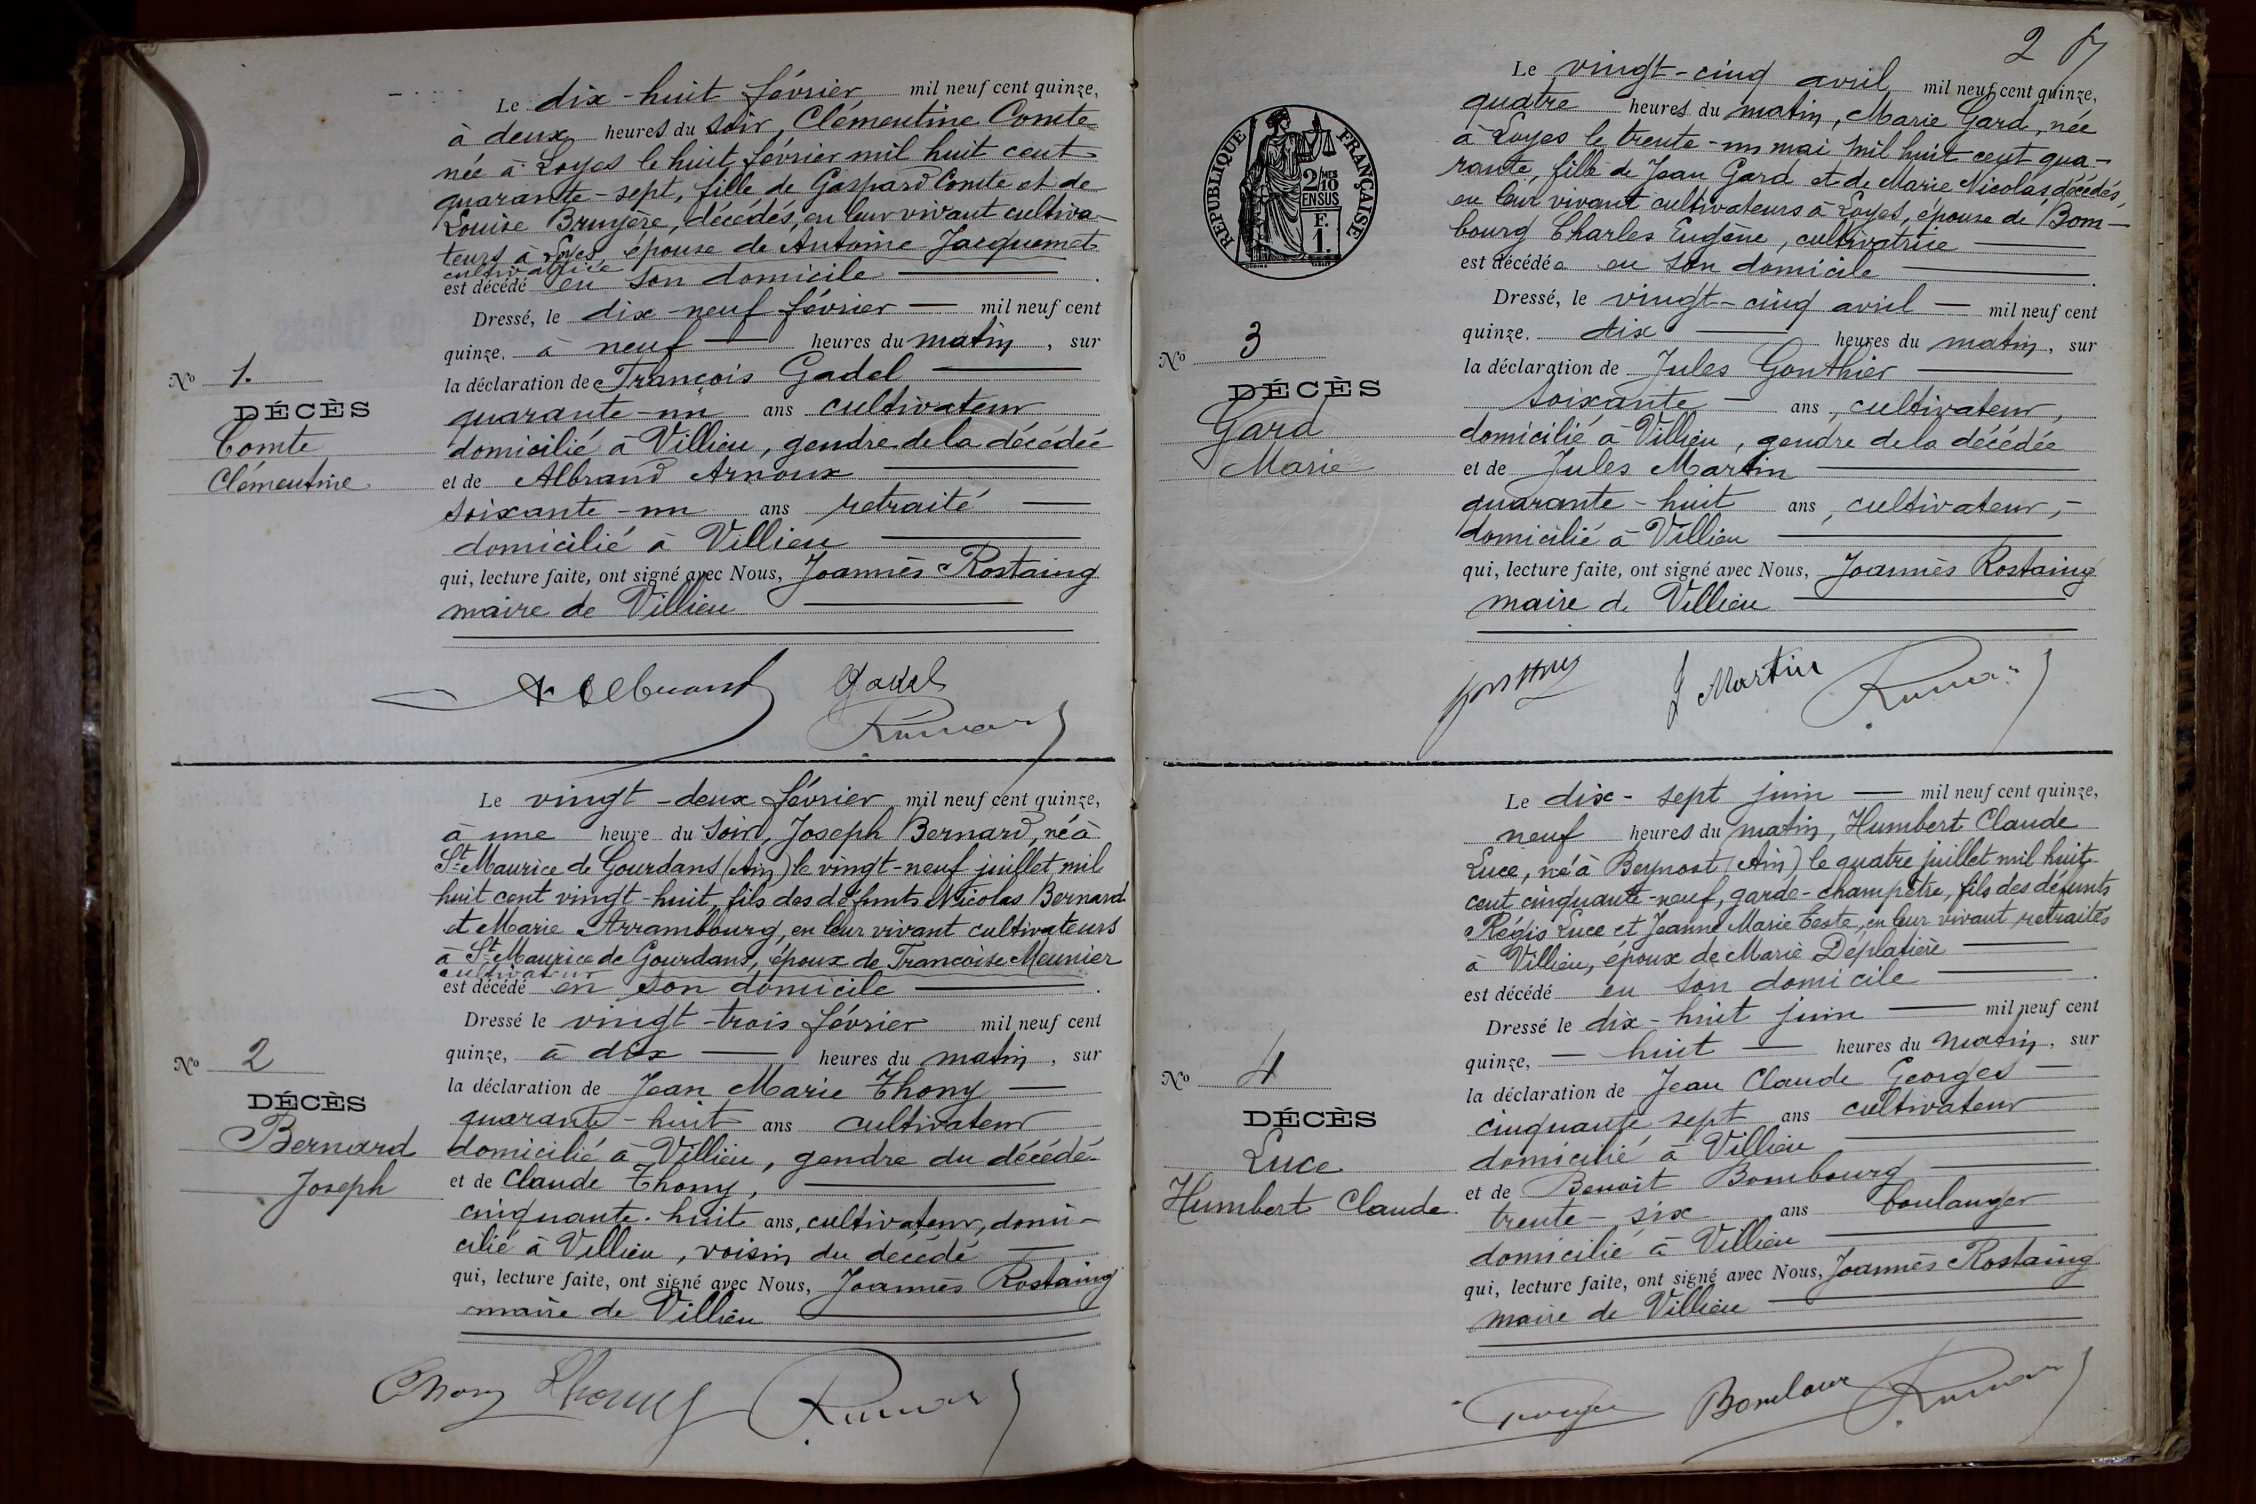 Le dix-huit février mil neuf cent quinze,
à deux heures du soir, Clémentine Comte
née à Loyes le huit février mil huit cent
quarante-sept, fille de Gaspard Comte et de
Louise Bruyère, décédés, en leur vivant cultiva-
teurs à Loyes, épouse de Antoine Jacquemet
cultivatrice
est décédé en son domicile
Dressé, le dix-neuf février mil neuf cent
quinze. à neuf heures du matin, sur
la déclaration de François Gadel
quarante-un ans cultivateur
domicilié à Villieu, gendre de la décédée
et de Albrand Arnoux
soixante-un ans retraité
domicilié à Villieu
qui, lecture faite, ont signé avec Nous, Joannès Rostaing
maire de Villieu
Nº 1.
DÉCÈS
Comte
Clémentine
Gadel
Le vingt-deux février mil neuf cent quinze,
à une heure du soir, Joseph Bernard, né à
St Maurice de Gourdans (Ain) le vingt-neuf juillet mil
huit cent vingt-huit, fils des défunts Nicolas Bernard
et Marie Arrambourg, en leur vivant cultivateurs
à St Maurice de Gourdans, époux de Françoise Meunier
cultivateur
est décédé en son domicile
Dressé le vingt-trois février mil neuf cent
quinze, à dix heures du matin, sur
la déclaration de Jean Marie Thony
quarante-huit ans cultivateur
domicilié à Villieu, gendre du décédé
et de Claude Thony,
cinquante-huit ans, cultivateur, domi-
cilié à Villieu, voisin du décédé
qui, lecture faite, ont signé avec Nous, Joannès Rostaing
maire de Villieu
Nº 2
DÉCÈS
Bernard
Joseph
2
RÉPUBLIQUE FRANÇAISE
2/10 MES
EN SUS
F.
1.
Le vingt-cinq avril mil neuf cent quinze,
quatre heures du matin, Marie Gard, née
à Loyes le trente-un mai mil huit cent qua-
rante, fille de Jean Gard et de Marie Nicolas, décédés,
en leur vivant cultivateurs à Loyes, épouse de Bom-
bourg Charles Eugène, cultivatrice
est décédée en son domicile
Dressé, le vingt-cinq avril mil neuf cent
quinze. dix heures du matin, sur
la déclaration de Jules Gonthier
soixante ans, cultivateur,
domicilié à Villieu, gendre de la décédée
et de Jules Martin
quarante-huit ans, cultivateur,
domicilié à Villieu
qui, lecture faite, ont signé avec Nous, Joannès Rostaing
maire de Villieu
Nº 3
DÉCÈS
Gard
Marie
J Martin
Le dix-sept juin mil neuf cent quinze,
neuf heures du matin, Humbert Claude
Luce, né à Beynost (Ain) le quatre juillet mil huit
cent cinquante-neuf, garde-champêtre, fils des défunts
Régis Luce et Jeanne Marie Teste, en leur vivant retraités
à Villieu, époux de Marie Déplatière
est décédé en son domicile
Dressé le dix-huit juin mil neuf cent
quinze, huit heures du matin, sur
la déclaration de Jean Claude Georges
cinquante sept ans cultivateur
domicilié à Villieu
et de Benoit Bombourg
trente-six ans boulanger
domicilié à Villieu
qui, lecture faite, ont signé avec Nous, Joannès Rostaing
maire de Villieu
Nº 4
DÉCÈS
Luce
Humbert Claude